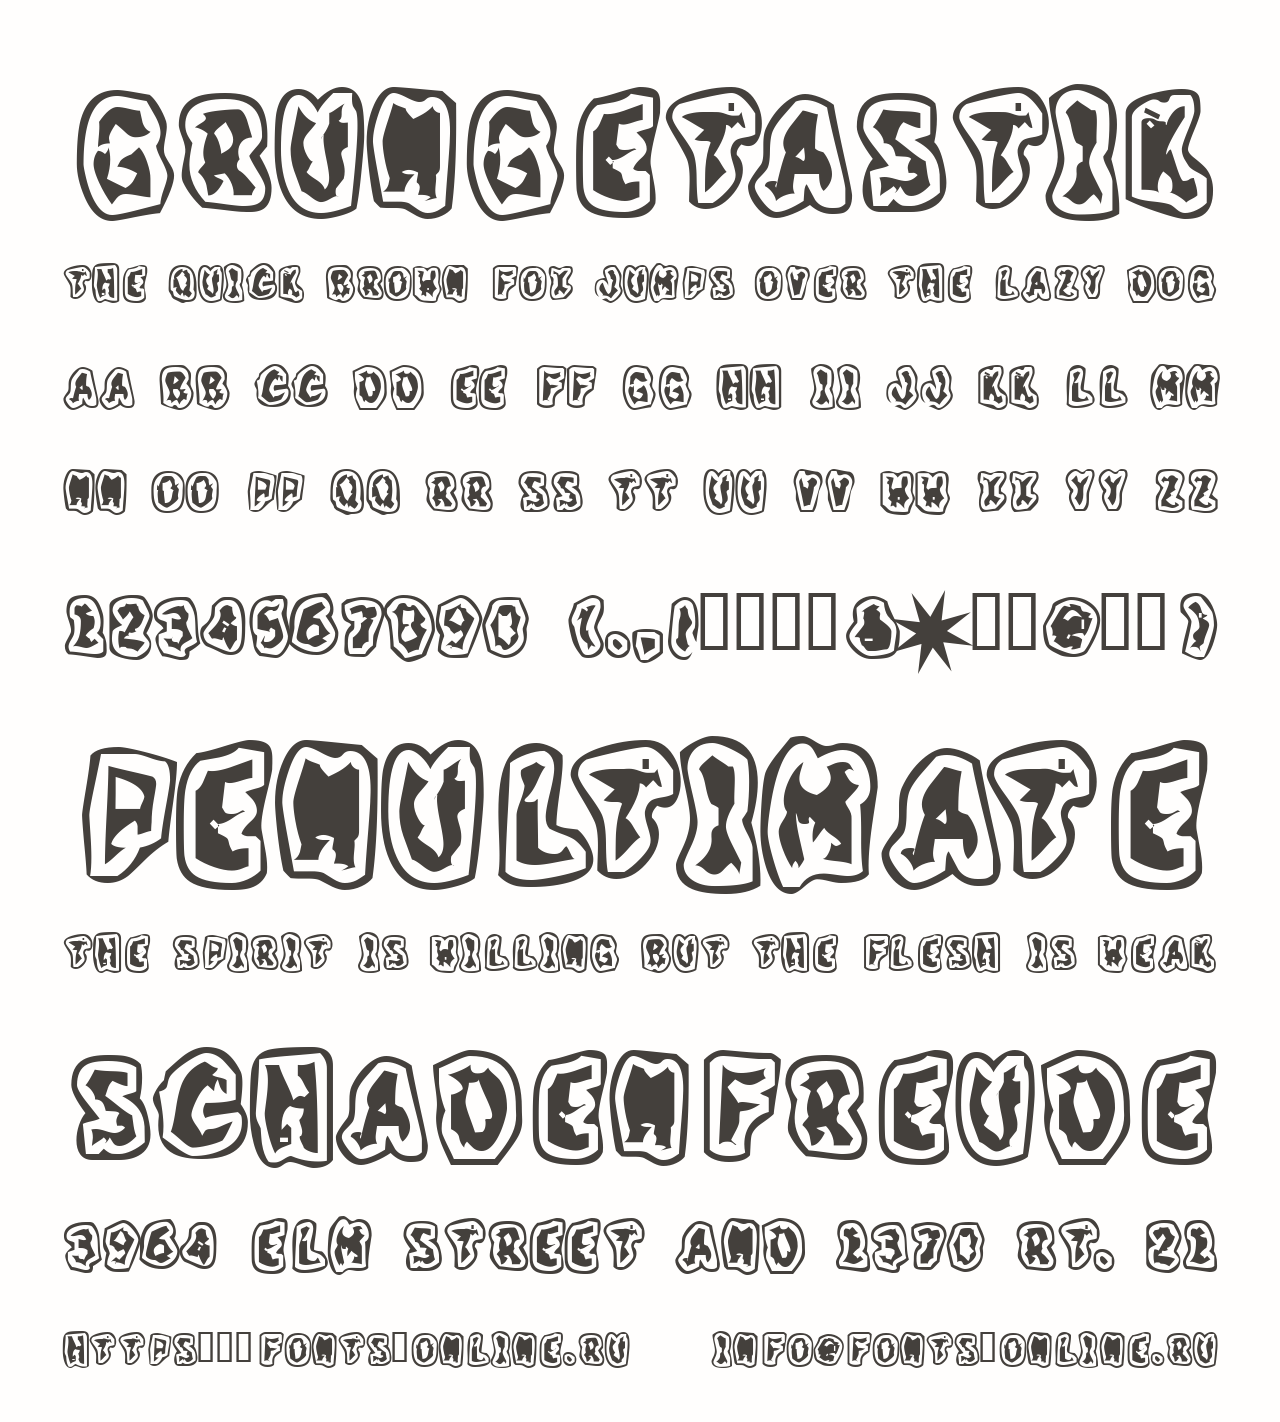 GRUNGETASTIK
THE QUICK BROWN FOX JUMPS OVER THE LAZY DOG
AA BB CC DD EE FF GG HH II JJ KK LL MM
NN OO PP QQ RR SS TT UU VV WW XX YY ZZ
1234567890 (.,!□□□□&*□□@□□)
PENULTIMATE
THE SPIRIT IS WILLING BUT THE FLESH IS WEAK
SCHADENFREUDE
3964 ELM STREET AND 1370 RT. 21
HTTPS□□□FONTS□ONLINE.RU INFO@FONTS□ONLINE.RU